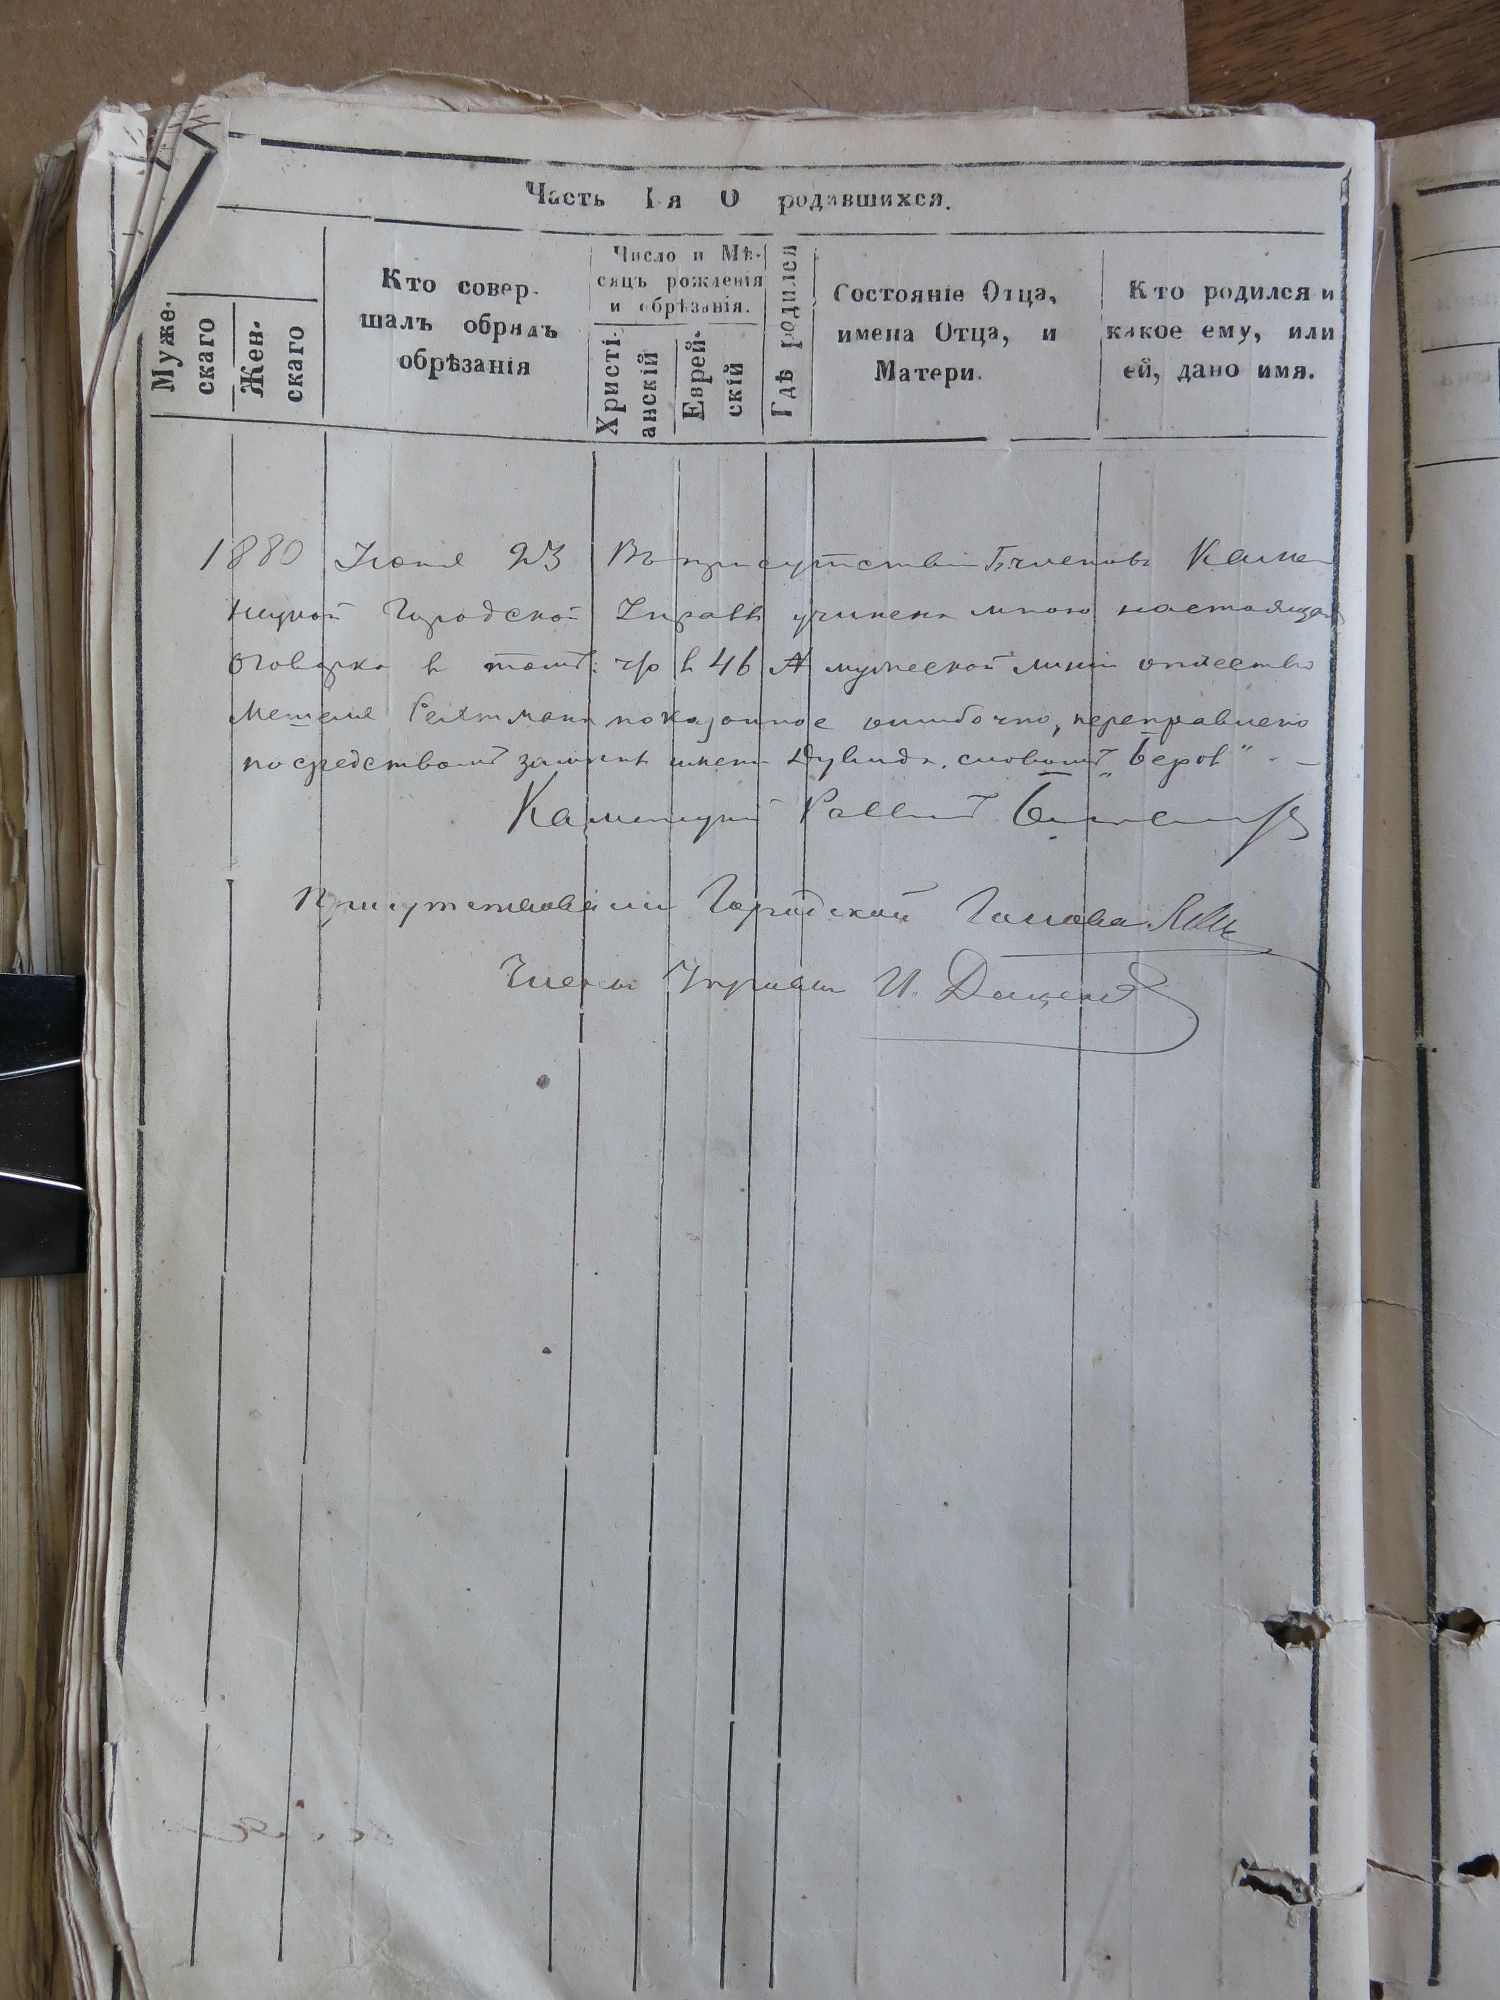 Часть I-я О родившихся.
Муже-
скаго
Жен-
скаго
Кто совер-
шалъ обрядъ
обрѣзанія
Число и Мѣ-
сяцъ рожденія
и обрѣзанія.
Христі-
анскій
Еврей-
скій
Гдѣ родился
Состояніе Отца,
имена Отца, и
Матери.
Кто родился и
какое ему, или
ей, дано имя.
1880 Іюня 23 Въ присутствіи Членовъ Каме
нецкой Городской Управы учинена мною настоящая
оговорка в томъ что в 46 № мужеской линіи отчество
показанное ошибочно, переправлено
посредствомъ имени словомъ „Беровъ“
Каменецкій Раввинъ
Присутствовали Городской Голова
Члены Управы И.